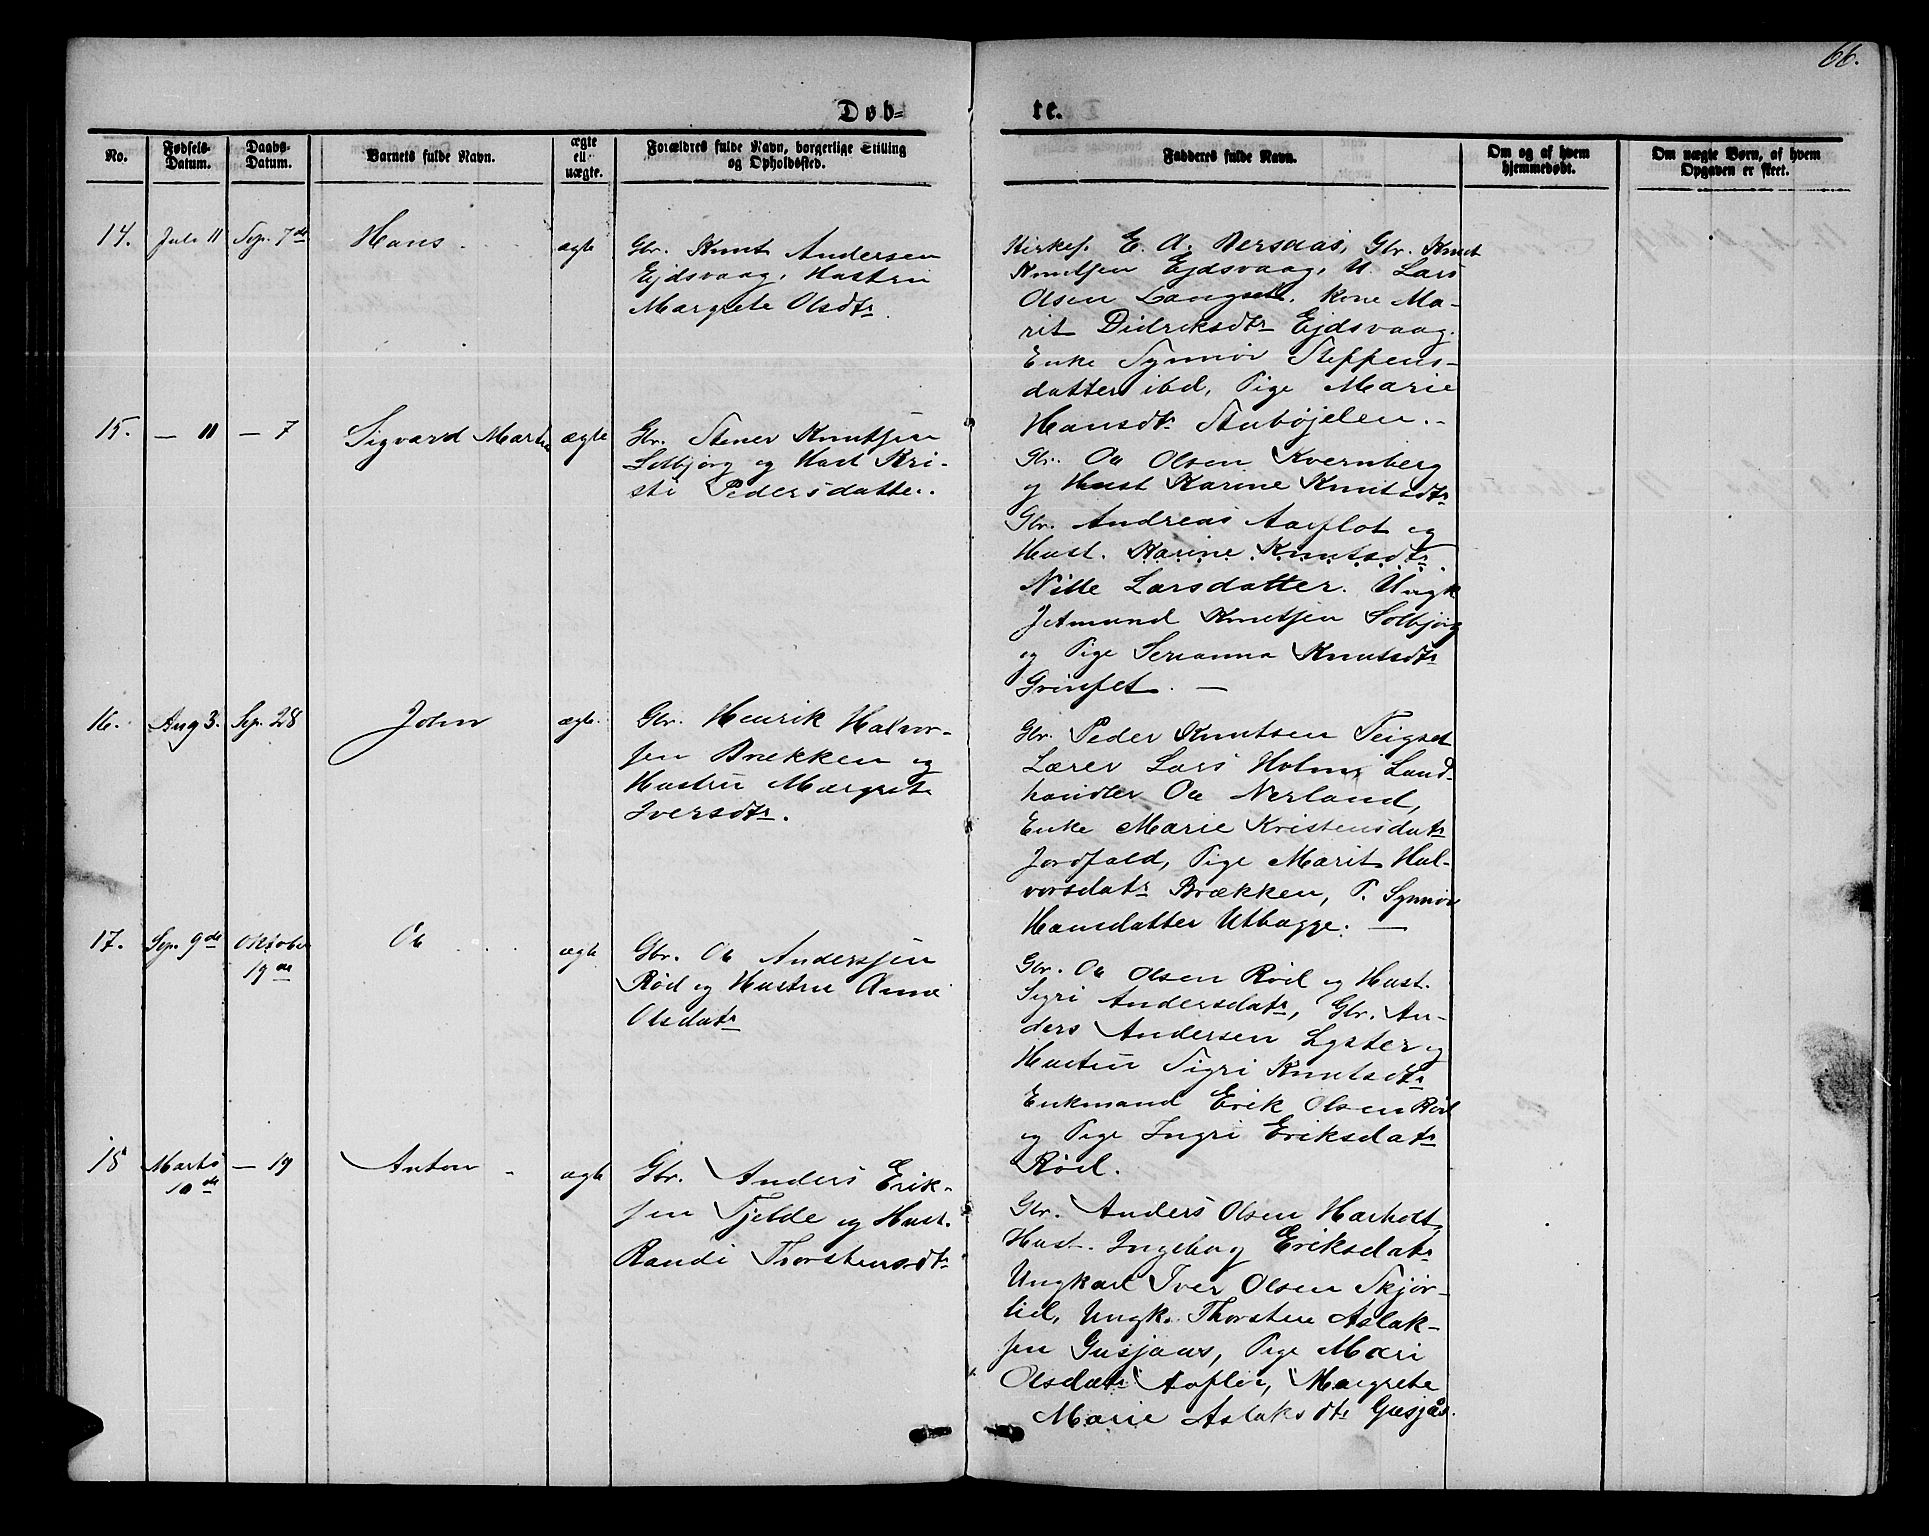 66.
Døb=
te.
No.
Fødsels-
Datum.
Daabs-
Datum.
Barnets fulde Navn.
ægte
ell.
uægte.
Forældres fulde Navn, borgerlige Stilling
og Opholdssted.
Fadderes fulde Navn.
Om og af hvem
hjemmedøbt.
Om uægte Børn, af hvem
Opgaven er skeet.
14.
Juli 11
Sep. 7de
Hans
ægte
Gbr. Knut Andersen
Ejdsvaag, Hustru
Margrete Olsdtr.
Kirkes. E. A. Versaas, Gbr. Knut
Knutsen Ejdsvaag, U. Lars
Olsen Langset. Kone Ma-
rit Didriksdtr Ejdsvaag.
Enke Synnøv Steffens-
datter ibd, Pige Marie
Hansdtr Stubøjelen.
15.
— 11
— 7
Sigvard Martin
ægte
Gbr. Stener Knutsen
Solbjørg og Hust Kri-
sti Pedersdatter.
Gbr. Ole Olsen Kvernberg
og Hust Karine Knutsdtr
Gbr. Andreas Aarflot og
Hust. Karine Knutsdtr
Nille Larsdatter. Ungk
Amund Knutsen Solbjørg
og Pige Serianna Knutsdtr
Grinset. —
16.
Aug 3.
Sep. 28
John
ægte.
Gbr. Henrik Halvor-
sen Brekken og
Hustru Margrete
Iversdtr.
Gbr. Peder Knutsen Teigset
Lærer Lars Holm, Land-
handler Ole Nerland,
Enke Marie Kristensdatr
Jordfald, Pige Marit Hal-
vorsdatr Brækken, P. Synnøv
Hansdatter Utbagge. —
17.
Sep. 9de
Oktober
19de
Ole
ægte
Gbr. Ole Anderssen
Rød og Hustru Anne
Olsdatr
Gbr. Ole Olsen Rød og Hust.
Sigri Andersdatr, Gbr. An-
ders Andersen Lyster og
Hustru Sigri Knutsdtr
Enkmand Erik Olsen Rød
og Pige Ingri Eriksdatr
Rød.
18
Marts
10de
— 19
Anton
ægte
Gbr. Anders Erik-
sen Tjelde og Hust.
Randi Thorstensdtr
Gbr. Anders Olsen Harholt,
Hust. Ingebog Eriksdatr
Ungkarl Iver Olsen Skjør-
lid, Ungk. Thorsten Aslak-
sen Gusjaas, Pige Mari
Olsdatr Aaflør, Margrete
Marie Aslaksdtr Gusjås.